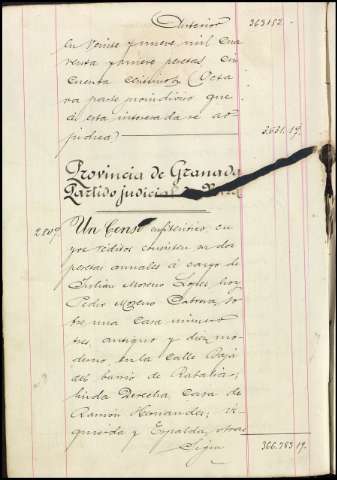 Anterior 363152.
en veinte y nueve mil cua
renta y nueve pesetas cin
cuenta centimos. Octa
va parte proindiviso que
á esta interesada se ad
judica 3.631.19.
Provincia de Granada
Partido judicial Baza
Un Censo enfiteutico, cu
yos réditos consisten en dos
pesetas anuales á cargo de
Julian Moreno Lopez hoy
Pedro Moreno so
bre una Casa número
tres, antiguo y diez mo
derno en la Calle Baja
del barrio de
linda Derecha, Casa de
Ramón Hernandez; Iz
quierda y Espalda, otras
Sigue 366.783.19.